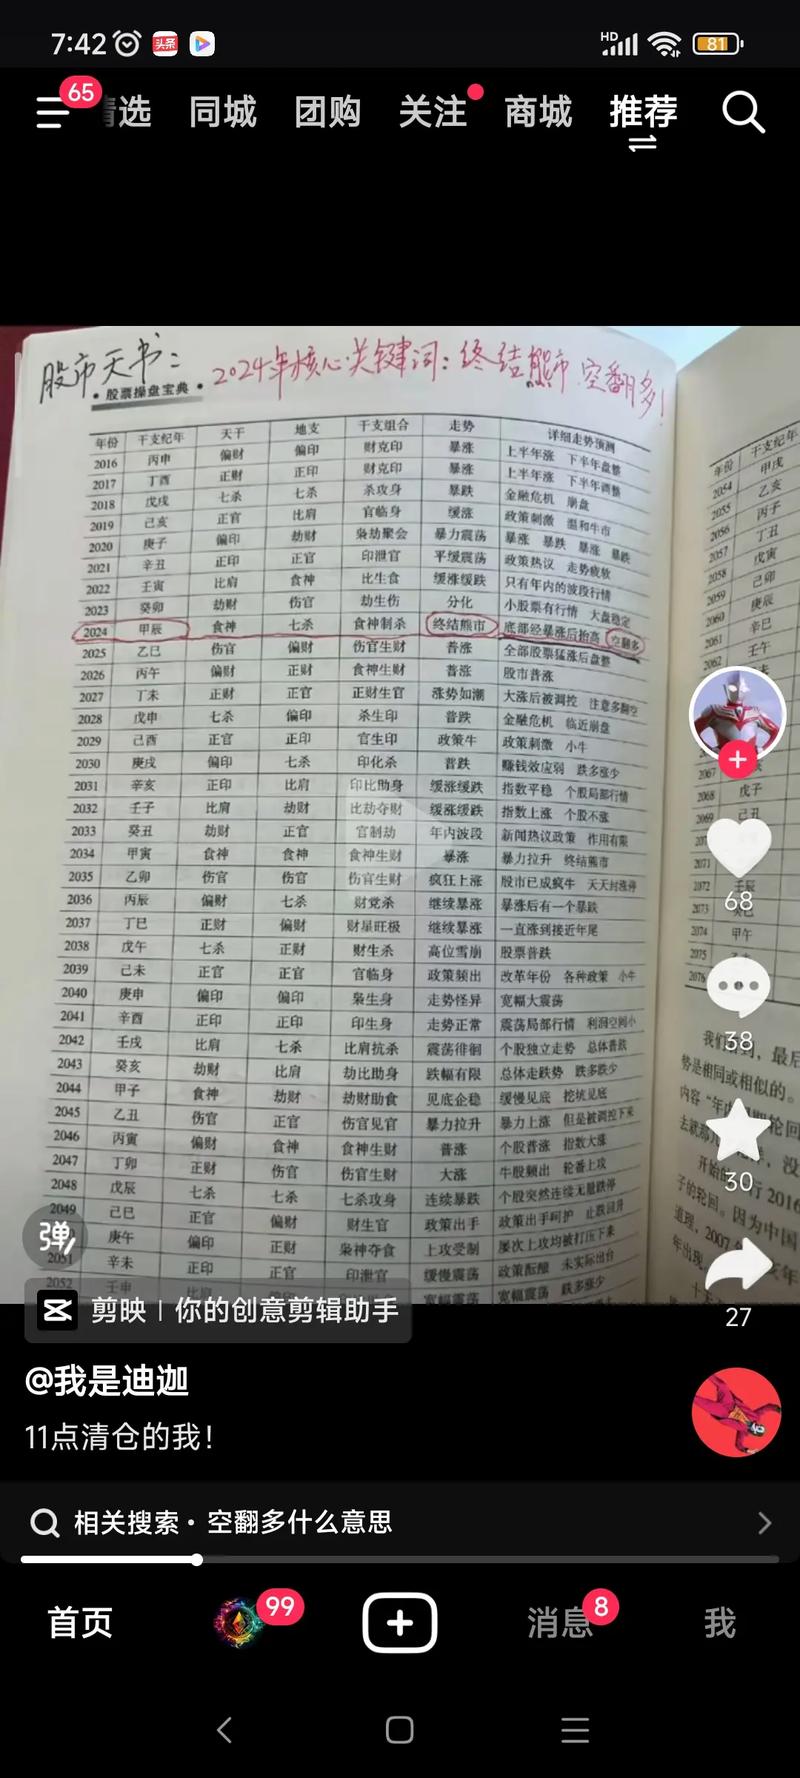 7:42
头条
HD
81
65
精选 同城 团购 关注 商城 推荐
股市天书：
2024年核心关键词：终结熊市 空翻多！
·股票操盘宝典·
年份 干支纪年 天干 地支 干支组合 走势 详细走势预测
2016 丙申 偏财 偏印 财克印 暴涨 上半年涨 下半年盘整
2017 丁酉 正财 正印 财克印 暴涨 上半年涨 下半年调整
2018 戊戌 七杀 七杀 杀攻身 暴跌 金融危机 崩盘
2019 己亥 正官 比肩 官临身 缓涨 政策刺激 温和牛市
2020 庚子 偏印 劫财 枭劫聚会 暴力震荡 暴涨 暴跌 暴涨 暴跌
2021 辛丑 正印 正官 印泄官 平缓震荡 政策热议 走势疲软
2022 壬寅 比肩 食神 比生食 缓涨缓跌 只有年内的波段行情
2023 癸卯 劫财 伤官 劫生伤 分化 小股票有行情 大盘稳定
2024 甲辰 食神 七杀 食神制杀 终结熊市 底部经暴涨后抬高 空翻多
2025 乙巳 伤官 偏财 伤官生财 普涨 全部股票猛涨后盘整
2026 丙午 偏财 正财 食神生财 普涨 股市普涨
2027 丁未 正财 正官 正财生官 涨势如潮 大涨后被调控 注意多翻空
2028 戊申 七杀 偏印 杀生印 普跌 金融危机 临近崩盘
2029 己酉 正官 正印 官生印 政策牛 政策刺激 小牛
2030 庚戌 偏印 七杀 印化杀 普跌 赚钱效应弱 跌多涨少
2031 辛亥 正印 比肩 印比助身 缓涨缓跌 指数平稳 个股局部行情
2032 壬子 比肩 劫财 比劫夺财 缓涨缓跌 指数上涨 个股不涨
2033 癸丑 劫财 正官 官制劫 年内波段 新闻热议政策 作用有限
2034 甲寅 食神 食神 食神生财 暴涨 暴力拉升 终结熊市
2035 乙卯 伤官 伤官 伤官生财 疯狂上涨 股市已成疯牛 天天封涨停
2036 丙辰 偏财 七杀 财党杀 继续暴涨 暴涨后有一个暴跌
2037 丁巳 正财 偏财 财星旺极 继续暴涨 一直涨到接近年尾
2038 戊午 七杀 正财 财生杀 高位雪崩 股票普跌
2039 己未 正官 正官 官临身 政策频出 改革年份 各种政策 小牛
2040 庚申 偏印 偏印 枭生身 走势怪异 宽幅大震荡
2041 辛酉 正印 正印 印生身 走势正常 震荡局部行情 利润空间小
2042 壬戌 比肩 七杀 比肩抗杀 震荡徘徊 个股独立走势 总体普跌
2043 癸亥 劫财 比肩 劫比助身 跌幅有限 总体走跌势 跌多跌少
2044 甲子 食神 劫财 劫财助食 见底企稳 缓慢见底 挖坑见底
2045 乙丑 伤官 正官 伤官见官 暴力拉升 暴力上涨 但是被调控下来
2046 丙寅 偏财 食神 食神生财 普涨 个股普涨 指数大涨
2047 丁卯 正财 伤官 伤官生财 大涨 牛股频出 轮番上攻
2048 戊辰 七杀 七杀 七杀攻身 连续暴跌 个股突然连续无量跌停
2049 己巳 正官 偏财 财生官 政策出手 政策出手呵护 止跌回升
庚午 偏印 正财 枭神夺食 上攻受制 屡次上攻均被打压下来
2051 辛未 正印 正官 印泄官 缓慢震荡 政策酝酿 未实际出台
2052 壬申 宽幅震荡 宽幅震荡 跌多涨少
年份 干支纪年
2054 甲戌
2055 乙亥
2056 丙子
2057 丁丑
2058 戊寅
2059 己卯
2060 庚辰
2061 辛巳
2062 壬午
2067
2068 戊子
2069 己丑
2071
2072 壬辰
2073 癸巳
2074 甲午
2075
2076
最后
势是相同或相似的。
行2016
子的轮回。因为中国
道理，2007
年出现
68
38
30
27
弹
剪映 | 你的创意剪辑助手
@我是迪迦
11点清仓的我！
相关搜索·空翻多什么意思
首页 99 消息 8 我